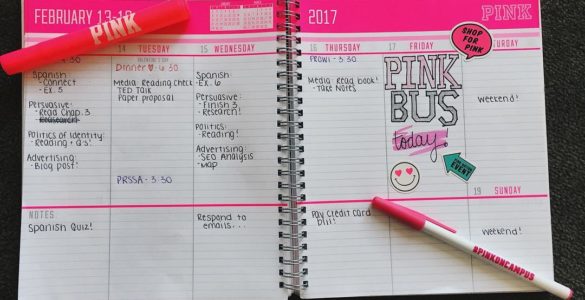 FEBRUARY 13-19
PINK
2017
PINK
14 TUESDAY
15 WEDNESDAY
16 THURSDAY
17 FRIDAY
SATURDAY
SHOP FOR PINK
VALENTINE'S DAY
Dinner ♡ 6:30
Spanish
- Connect
- Ex. 5
Persuasive:
- Read Chap. 3
- Research!
Politics of Identity:
- Reading + Q's!
Advertising:
- Blog post!
Media: Reading Check
TED Talk
Paper proposal
PRSSA - 3:30
Spanish
- Ex. 6
Persuasive:
- Finish 3
- Research!
Politics:
- Reading!
Advertising:
- SEO Analysis
- Map
Prowl - 3:30
Media: Read book!
- Take Notes
PINK
BUS
today!
EVENT
weekend!
19 SUNDAY
NOTES:
Spanish Quiz!
Respond to
emails...
Pay Credit Card
bill!
weekend!
#PINKONCAMPUS